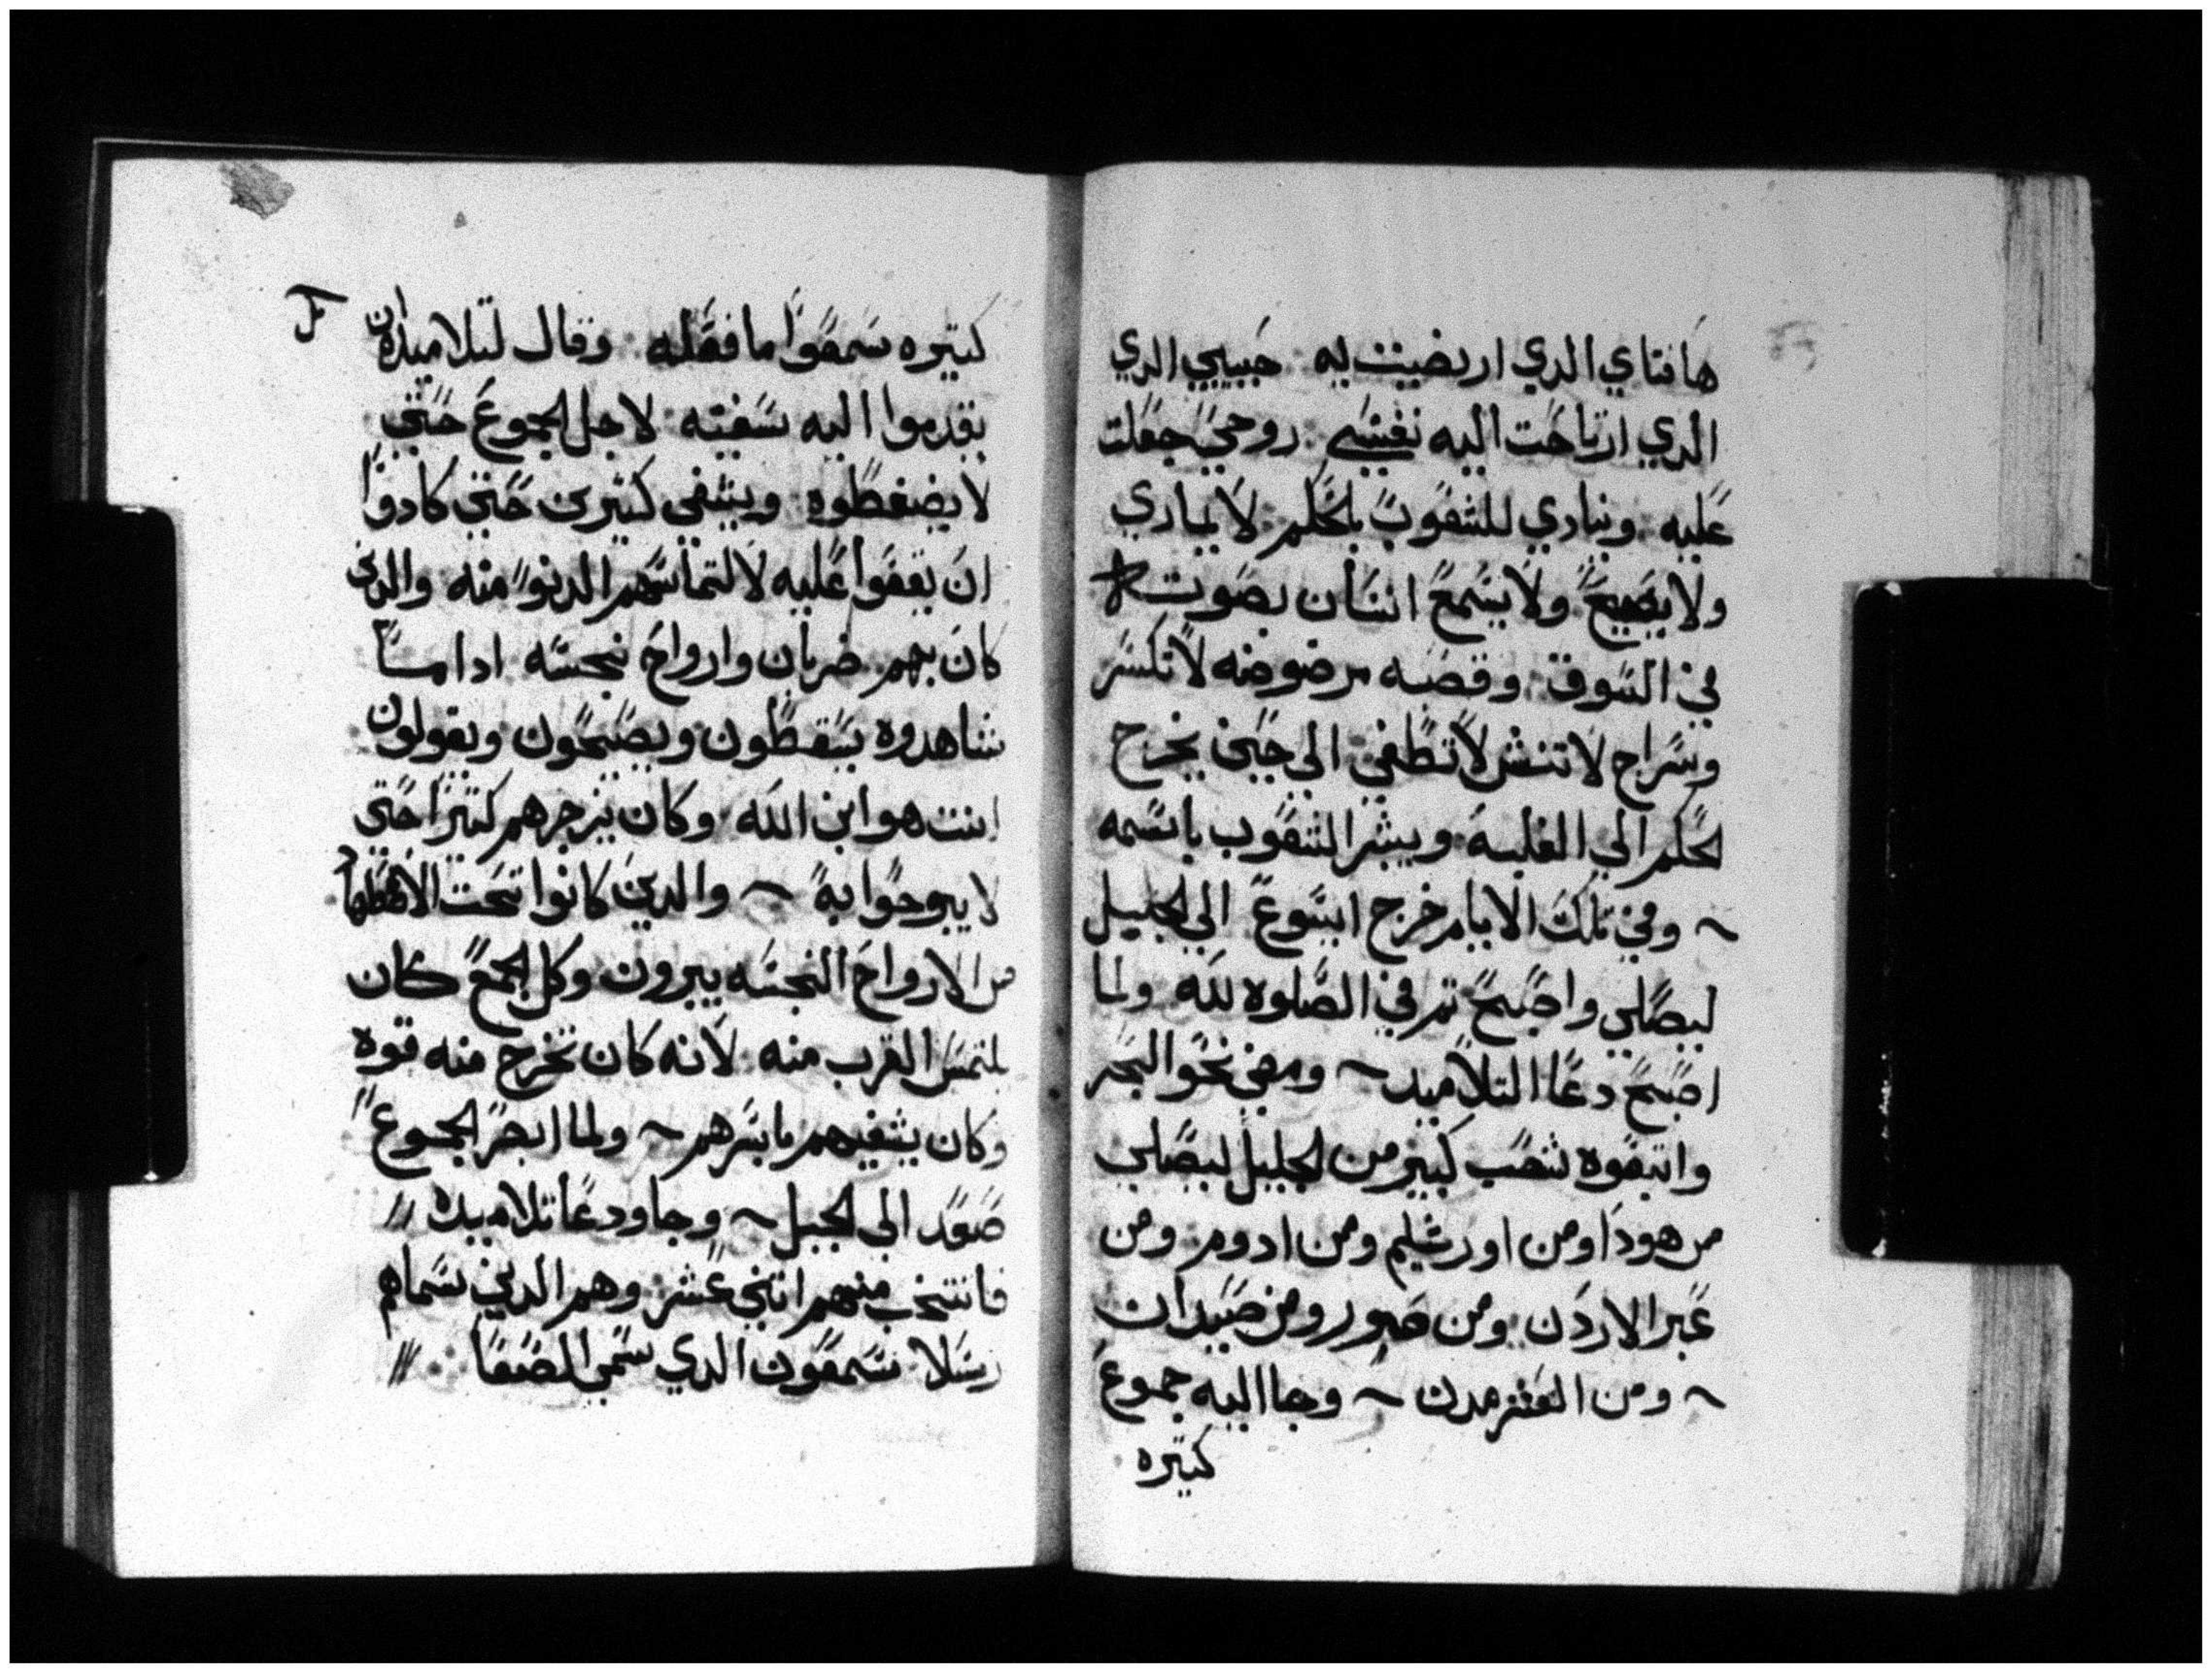 ها فتاي الدي ارتضيت به حبيبي الدي
الدي ارتاحت اليه نفسي روحي جعلت
عليه وينادي للشعوب بالحكم لا يماري
ولا يصيح ولا يسمع انسان بصوته
في السوق وقصبه مرضوضه لا تكسر
وسراج لا تنش لا تطفي الي حين يخرج
لحكم الي الغلبه ويبشر الشعوب باسمه
~ وفي تلك الايام خرج ايسوع الي الجليل
ليصلي واصبح تم في الصلوه لله ولما
اصبح دعا التلاميد ~ ومضي نحو البحر
واتبعوه شعب كبير من الجليل ليصلي
من هودا ومن اورشليم ومن ادوم ومن
عبر الاردن ومن صور ومن صيدان
~ ومن العشر مدن ~ وجا اليه جموع
كتيره
كتيره سمعوا ما فعله وقال لتلاميده ان
يقدموا اليه سفينه لاجل الجموع حتي
لا يضغطوه ويشفي كثيرين حتي كادوا
ان يقعوا عليه لالتماسهم الدنو منه والدي
كان بهم ضربان وارواح نجسه ادا ما
شاهدوه يسقطون ويصيحون ويقولون
انت هو ابن الله وكان يزجرهم كتيرا حتي
لا يبوحوا به ~ والدين كانوا تحت الاضطهاد
من الارواح النجسه يبرون وكل الجمع كان
يلتمس القرب منه لانه كان تخرج منه قوه
وكان يشفيهم باسرهم ~ ولما ابصر الجموع
صعد الي الجبل ~ وجا ودعا تلاميده
فانتخب منهم اتني عشر وهم الدين سماهم
رسلا سمعون الدي سمي الصفا